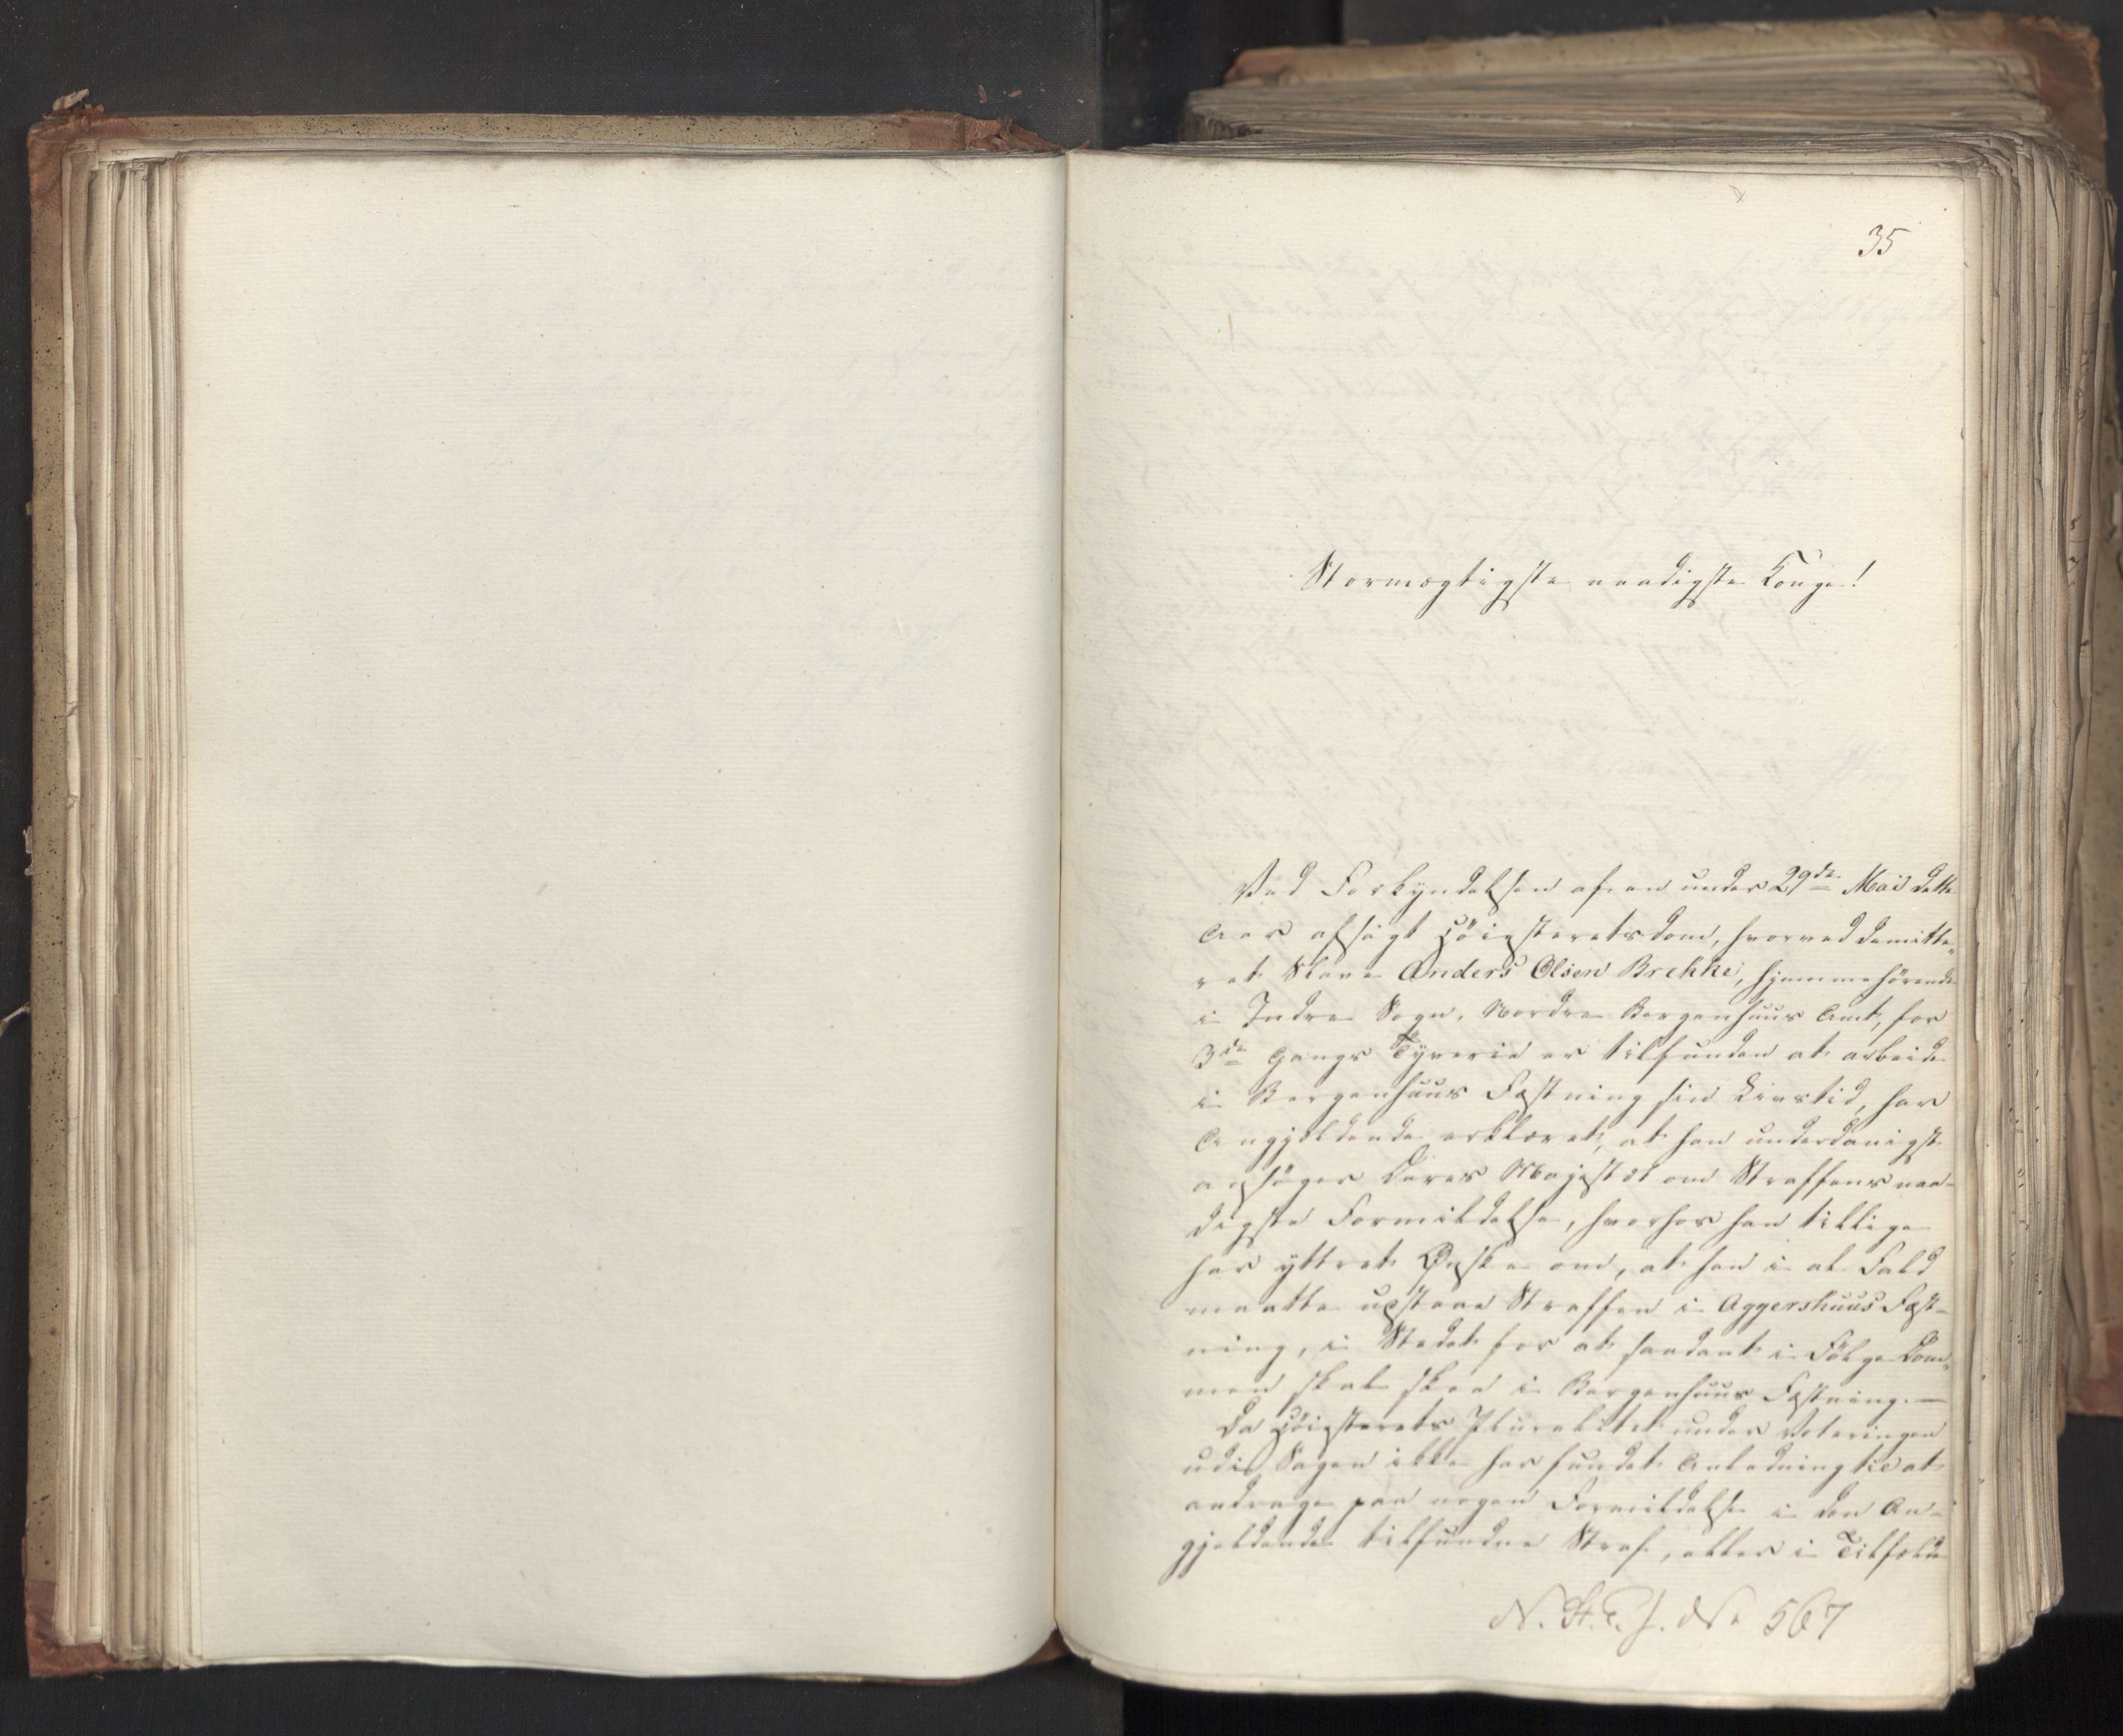 35
Stormægtigste naadigste Konge!
Ved Forkyndelsen af en under 29de Maii dette
Aar afsagt Höiesteretsdom, hvorved demitte„
ret Slave Anders Olsen Brekke, hjemmehörende
i Indre Sogn, Nordre Bergenhuus Amt, for
3de Gangs Tyverie er tilfunden at arbeide
i Bergenhuus Fæstning sin Livstid, har
Angjældende erklæret, at han underdanigst
ansöger Deres Majestæt om Straffens naa-
digste Formildelse, hvorhos han tillige
har yttret Ønske om, at han i al Fald
maatte udstaae Straffen i Aggershuus Fæst-
ning, i Stedet for at saadant i Fölge Dom„
men skal skee i Bergenhuus Fæstning. —
Da Höiesterets Pluralitet under Voteringen
udi Sagen ikke har fundet Anledning til at
andrage paa nogen Formildelse i den An-
gjeldende tilfundne Straf, eller i Tilfælde
N. St. E. J. No 567